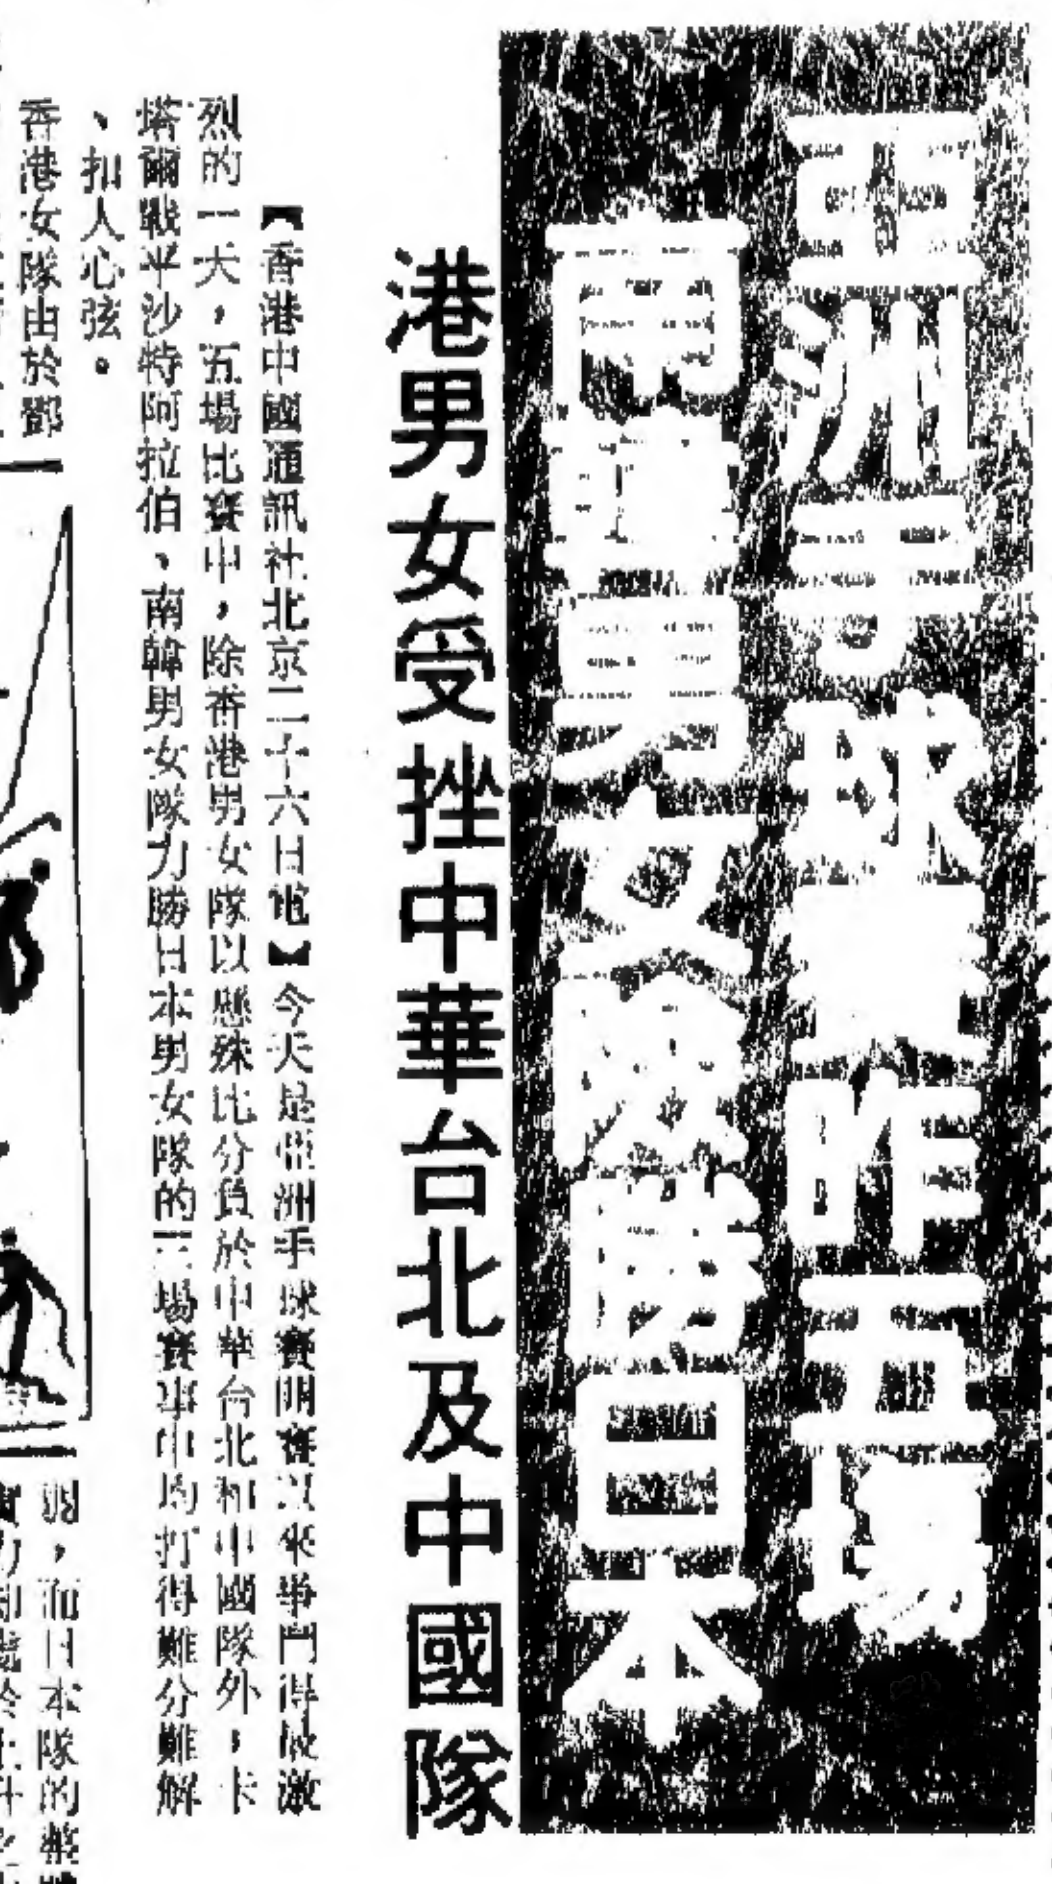 亞洲手球賽昨五場
南韓男女隊勝日本
港男女受挫中華台北及中國隊
【香港中國通訊社北京二十六日電】今天是亞洲手球賽開賽以來爭鬥得最激
烈的一天，五場比賽中，除香港男女隊以懸殊比分負於中華台北和中國隊外，卡
塔爾戰平沙特阿拉伯、南韓男女隊力勝日本男女隊的三場賽事中均打得難分難解
、扣人心弦。
香港女隊由於鄧
，而日本隊的